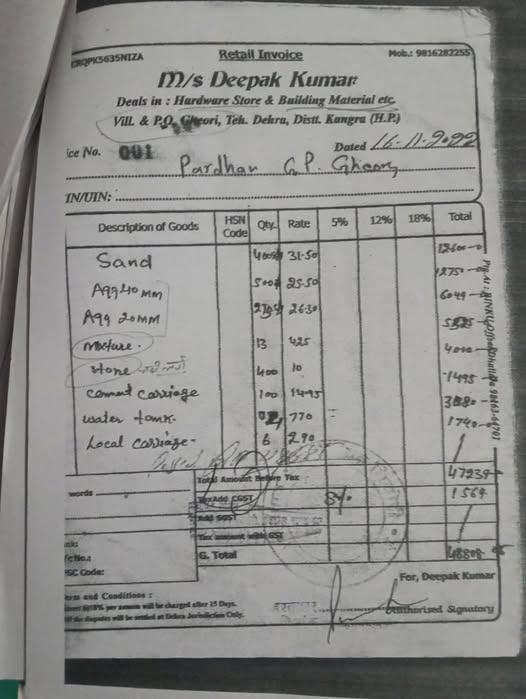 CRQPK5635NIZA Retail Invoice Mob.: 9816282255
M/s Deepak Kumar
Deals in : Hardware Store & Building Material etc.
Vill. & P.O. Gheori, Teh. Dehra, Distt. Kangra (H.P.)
ice No. 001 Dated 16-11-2022
Pardhan G.P. Gheori
TIN/UIN:
Description of Goods HSN Code Qty. Rate 5% 12% 18% Total
Sand 400 31.50 12600-0
Agg 40 MM 500 25.50 12750-0
Agg 20MM 26.30 6049
Mixture. 13 425
Stone 400 10 4000
Cement carriage 100 14.95 1495
water tank. 770
Local carriage- 6 290 1740-0
Total Amount Before Tax 47239
words Tax Add CGST 1569
Add SGST
Tax amount with GST
G. Total 48808
SC Code:
For, Deepak Kumar
erm and Conditions :
18% per annum will be charged after 15 Days.
If the disputes will be settled at Dehra Jurisdiction Only.
Authorised Signatory